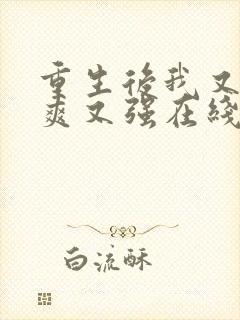 重生後我又
爽又強在綫
白流酥